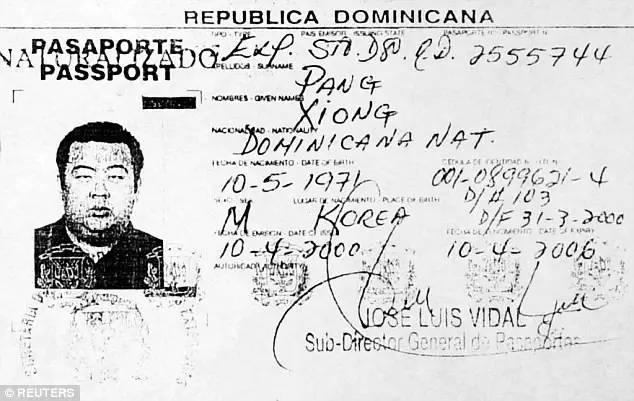 REPUBLICA DOMINICANA
NATURALIZADO
PASAPORTE
PASSPORT
TIPO - TYPE PAIS EMISOR - ISSUING STATE PASAPORTE NO. - PASSPORT N.
Exp. STO. DGO. R.D. 2555744
APELLIDOS - SURNAME
PANG
NOMBRES - GIVEN NAMES
XIONG
NACIONALIDAD - NATIONALITY
DOMINICANA NAT.
FECHA DE NACIMIENTO - DATE OF BIRTH CEDULA DE IDENTIDAD N.
10-5-1971 001-0899621-4
D/# 103
SEXO - SEX LUGAR DE NACIMIENTO - PLACE OF BIRTH
M KOREA D/F 31-3-2000
FECHA DE EMISION - DATE OF ISSUE FECHA DE VENCIMIENTO - DATE OF EXPIRY
10-4-2000 10-4-2006
AUTORIDAD - AUTHORITY
JOSE LUIS VIDAL
Sub-Director General de Pasaportes
© REUTERS